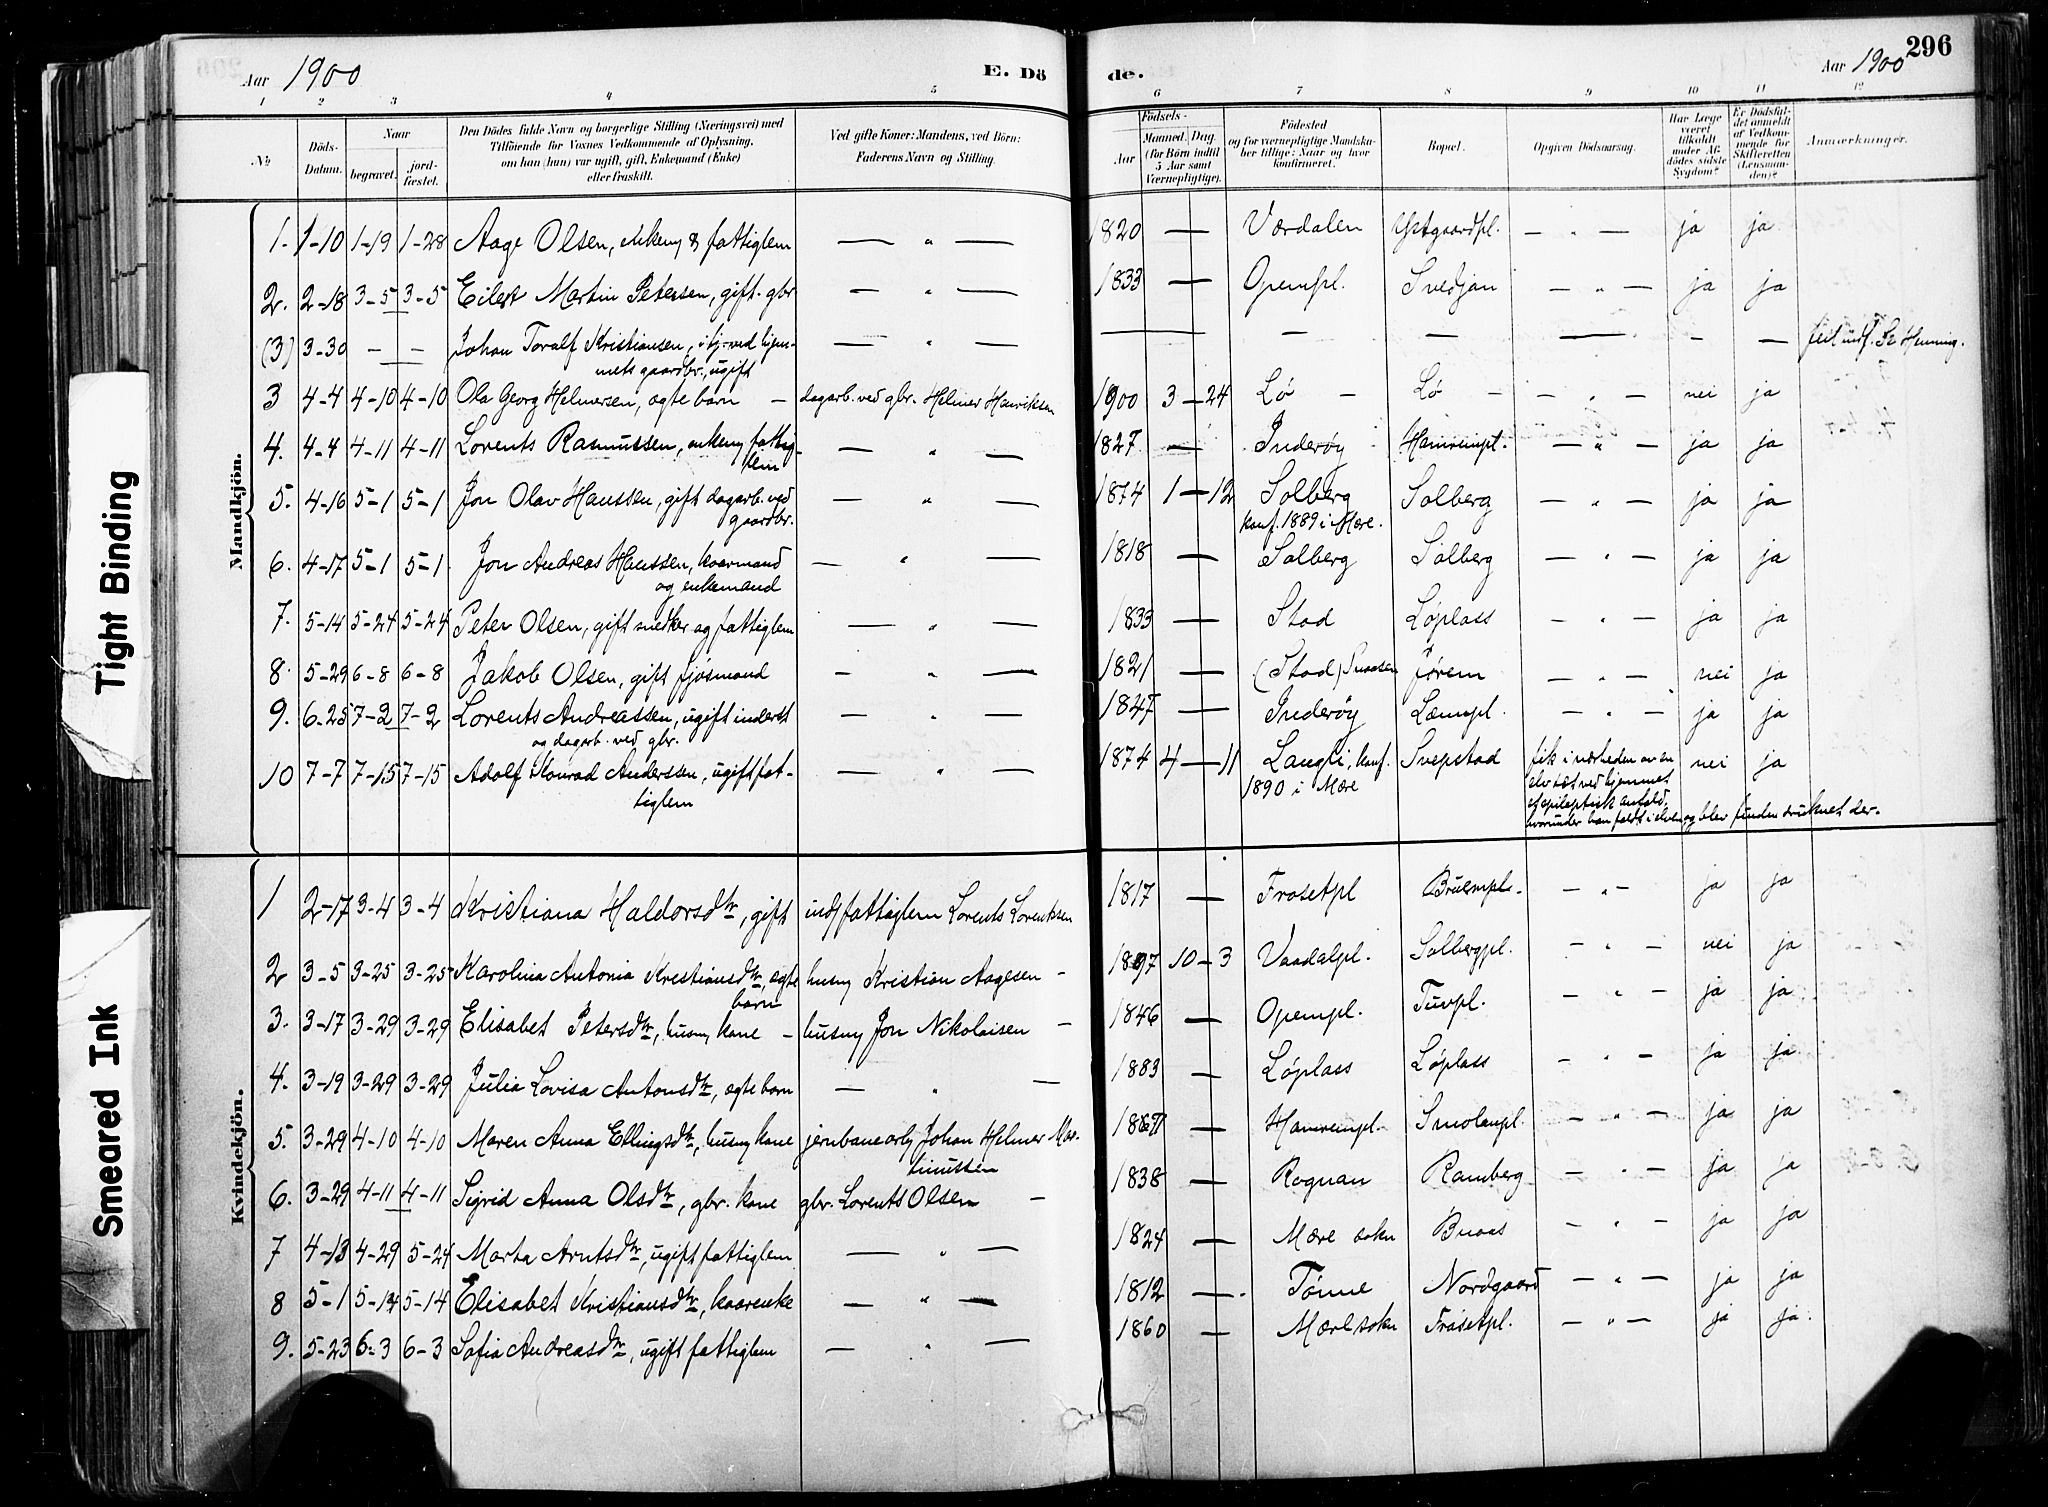 296
Aar 1900 E. Dö de. Aar 1900
1 2 3 4 5 6 7 8 9 10 11 12
No Döds-Datum. Naar begravet. jordfæstet. Den Dödes fulde Navn og borgerlige Stilling (Næringsvei) med Tilföiende for Voxnes Vedkommende af Oplysning, om han (hun) var ugift, gift, Enkemand (Enke) eller fraskilt. Ved gifte Koner: Mandens, ved Börn: Faderens Navn og Stilling. Födsels- Aar Maaned. Dag. (for Börn indtil 5 Aar samt Værnepligtige). Födested og for værnepligtige Mandskaber tillige: Naar og hvor konfirmeret. Bopæl. Opgiven Dödsaarsag. Har Læge været tilkaldt under Afdödes sidste Sygdom? Er Dödsfaldet anmeldt af Vedkommende for Skifteretten (Lensmanden)? Anmærkninger.
Mandkjön.
1. 1-10 1-19 1-28 Aage Olsen, enkem & fattiglem — " — 1820 — Værdalen Østgaardpl. — " — ja ja
2. 2-18 3-5 3-5 Eilert Martin Petersen, gift gbr — " — 1833 — Opempl. Svedjan — " — ja ja
(3) 3-30 — — Johan Toralf Kristiansen, i hj. ved hjem- — " — — — — — — — feil indf. Se Henning.
mets gaardbr., ugift
3 4-4 4-10 4-10 Ola Georg Helmersen, ægte barn — dagarb. ved gbr. Helmer Henriksen 1900 3 — 24 Lø — Lø — — " — nei ja
4. 4-4 4-11 4-11 Lorents Rasmussen, enkem fattig- — " — 1827 — Inderøy Hamrempl. — " — ja ja
lem
5. 4-16 5-1 5-1 Jon Olav Hanssen, gift dagarb. ved — " — 1874 1 — 12 Solberg Solberg — " — ja ja
gaardbr. konf. 1889 i Mære.
6. 4-17 5-1 5-1. Jon Andreas Hanssen, kaarmand — " — 1818 — Solberg Solberg — " — ja ja
og enkemand
7. 5-14 5-24 5-24 Peter Olsen, gift snedker og fattiglem — " — 1833 — Stod Løplass — " — ja ja
8. 5-29 6-8 6-8 Jakob Olsen, gift fjøsmand — " — 1821 — (Stod) Snaasen Førem — " — nei ja
9. 6-25 7-2 7-2 Lorents Andreassen, ugift inderst — " — 1847 — Inderøy Læmpl. — " — ja ja
og dagarb. ved gbr.
10 7-7 7-15 7-15 Adolf Konrad Anderssen, ugift fat- — " — 1874 4 — 11 Langli, konf. Svepstad fik i nærheden av en nei ja
tiglem 1890 i Mære elv tæt ved hjemmet
et epileptisk anfald,
hvorunder han faldt i elven og blev funden druknet der.
Kvindekjön.
1 2-17 3-4 3-4 Kristiana Haldorsdtr, gift ind. fattiglem Lorents Lorentsen 1817 — Frosetpl Bruempl. — " — ja ja
2 3-5 3-25 3-25 Karolina Antonia Kristiansdtr, ægte husm Kristian Aagesen — 1897 10 — 3 Vaadalpl. Solbergpl. — " — nei ja
barn
3. 3-17 3-29 3-29 Elisabet Petersdtr, husm, kone — husm Jon Nikolaisen — 1846 — Opempl. Tuvpl. — " — ja ja
4. 3-19 3-29 3-29 Julia Lovisa Antonsdtr, ægte barn — " — 1883 — Løplass Løplass — " — ja ja
5. 3-29 4-10 4-10 Maren Anna Ellingsdtr, husm kone jernbanearb Johan Helmer Mar- — Hamrempl. Smolanpl. — " — ja ja
tinussen
6. 3-29 4-11 4-11 Sigrid Anna Olsdtr, gbr. kone gbr. Lorents Olsen — 1838 — Rognan Ramberg — " — ja ja
7 4-13 4-29 5-24 Marta Arntsdtr, ugift fattiglem — " — 1824 — Mære sokn Buaas — " — ja ja
8 5-1 5-14 5-14 Elisabet Kristiansdtr, kaarenke — " — 1812 — Tønne Nordgaard — " — ja ja
9. 5-23 6-3 6-3 Sofia Andreasdtr, ugift fattiglem — " — 1860 — Mære sokn Frosetpl. — " — ja ja.
Tight Binding
Smeared Ink